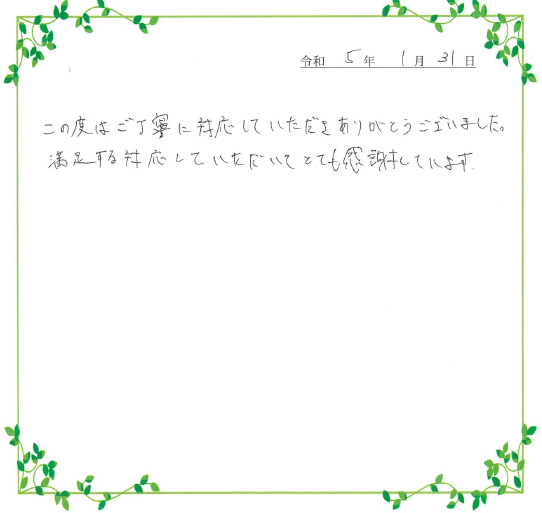 令和 5年 1月 31日
この度はご丁寧に対応していただきありがとうございました。
満足する対応していただいてとても感謝しています.